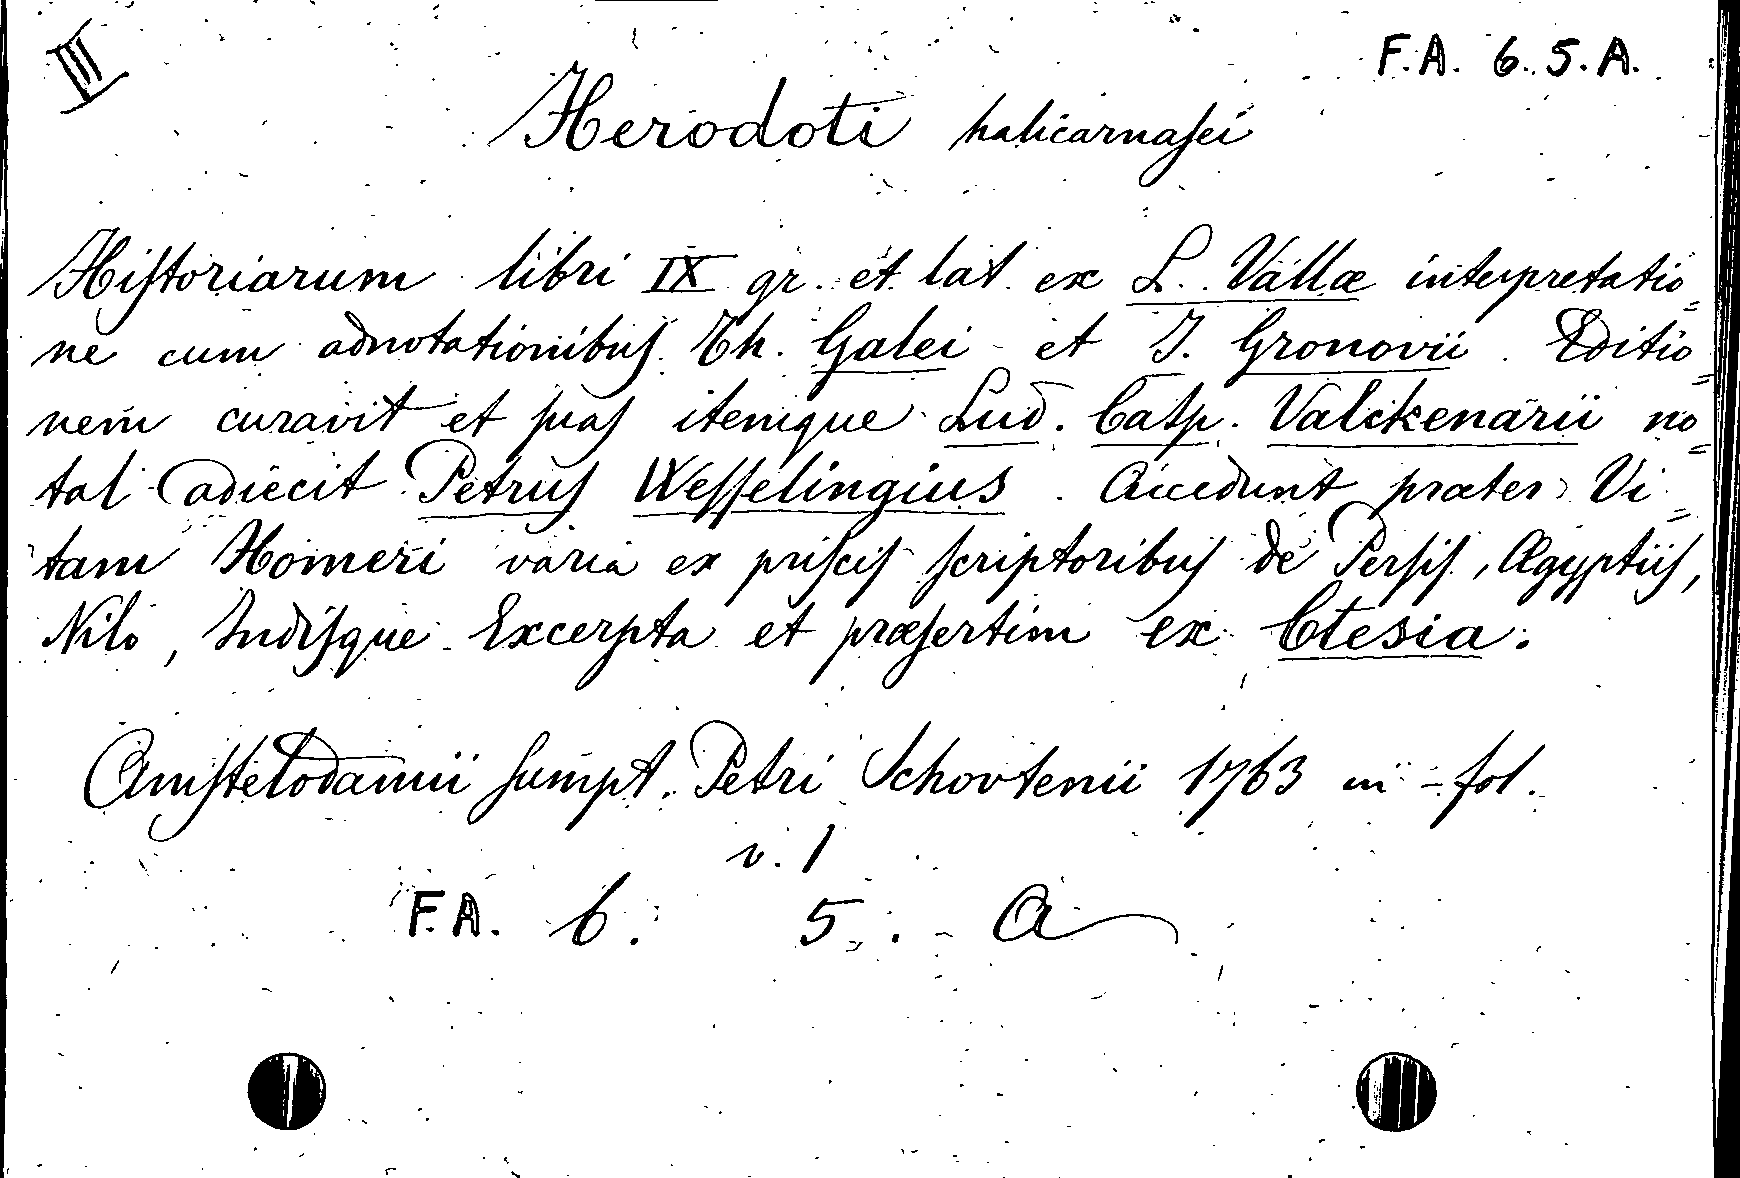 III
F.A. 6. 5. A.
Herodoti halicarnaſei
Hiſtoriarum libri IX gr. et lat. ex L. Vallæ interpretatio=
ne cum adnotationibuſ Th. Galei et J. Gronovii. Editio=
nem curavit et ſuaſ itemque Lud. Caſp. Valckenarii no=
taſ adiecit Petruſ Weſſelingius. Accedunt præter Vi=
tam Homeri varia ex priſciſ ſcriptoribuſ de Perſiſ, Ægyptiiſ,
Nilo, Indiſque Excerpta et præſertim ex Ctesia.
Amſtelodamii ſumpt. Petri Schovtenii 1763 in-fol.
v. 1
F.A. 6. 5. A